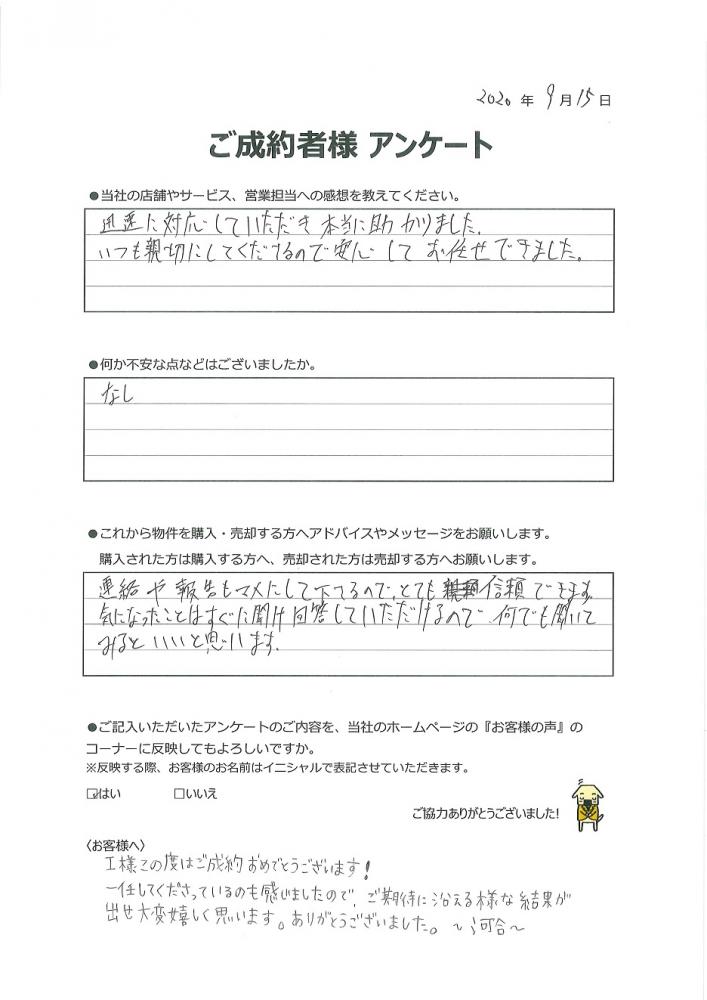 2020年 9月15日
ご成約者様 アンケート
●当社の店舗やサービス、営業担当への感想を教えてください。
迅速に対応していただき本当に助かりました。
いつも親切にしてくださるので安心してお任せできました。
●何か不安な点などはございましたか。
なし
●これから物件を購入・売却する方へアドバイスやメッセージをお願いします。
購入された方は購入する方へ、売却された方は売却する方へお願いします。
連絡や報告もマメにして下さるので、とても信頼できます。
気になったことはすぐに聞け回答していただけるので何でも聞いて
みるといいと思います。
●ご記入いただいたアンケートのご内容を、当社のホームページの『お客様の声』の
コーナーに反映してもよろしいですか。
※反映する際、お客様のお名前はイニシャルで表記させていただきます。
☑はい □いいえ
ご協力ありがとうございました!
〈お客様へ〉
I様この度はご成約おめでとうございます!
一任してくださっているのも感じましたので、ご期待に沿える様な結果が
出せ大変嬉しく思います。ありがとうございました。 ～河合～